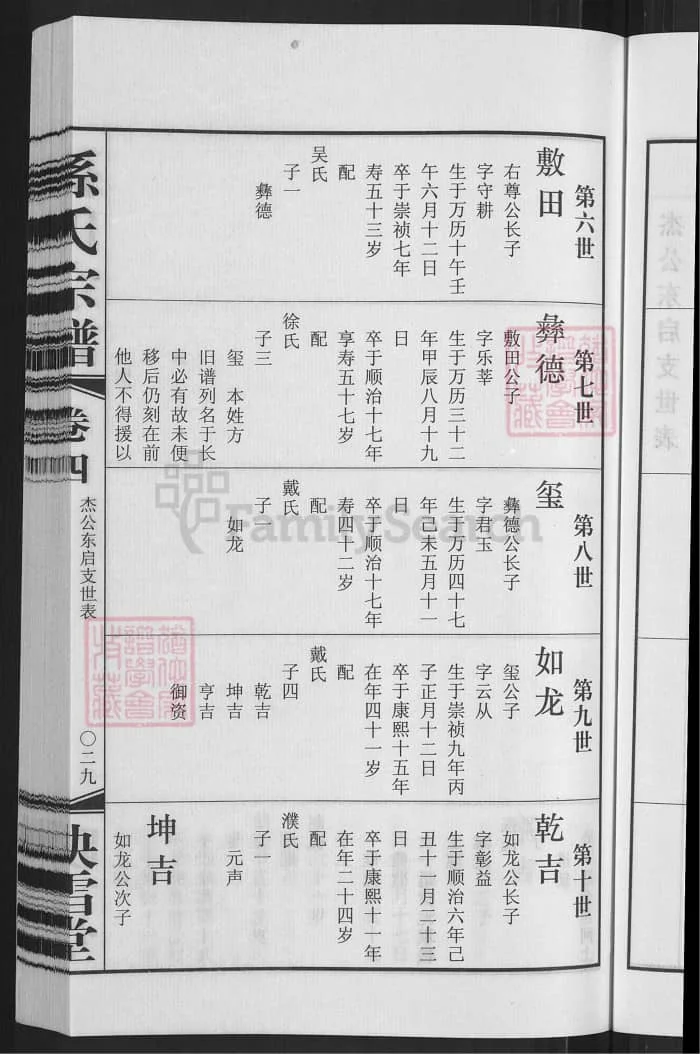 第六世
敷田
右尊公长子
字守耕
生于万历十午壬
午六月十二日
卒于崇祯七年
寿五十三岁
配
吴氏
子一
彝德
第七世
彝德
敷田公子
字乐莘
生于万历三十二
年甲辰八月十九
日
卒于顺治十七年
享寿五十七岁
配
徐氏
子三
玺 本姓方
旧谱列名于长
中必有故未便
移后仍刻在前
他人不得援以
第八世
玺
彝德公长子
字君玉
生于万历四十七
年己未五月十一
日
卒于顺治十七年
寿四十二岁
配
戴氏
子一
如龙
第九世
如龙
玺公子
字云从
生于崇祯九年丙
子正月十二日
卒于康熙十五年
在年四十一岁
配
戴氏
子四
乾吉
坤吉
亨吉
御资
第十世
乾吉
如龙公长子
字彰益
生于顺治六年己
丑十一月二十三
日
卒于康熙十一年
在年二十四岁
配
濮氏
子一
元声
坤吉
如龙公次子
孫氏宗譜
卷四
杰公东启支世表
〇二九
映雪堂
FamilySearch
杰公东启支世表